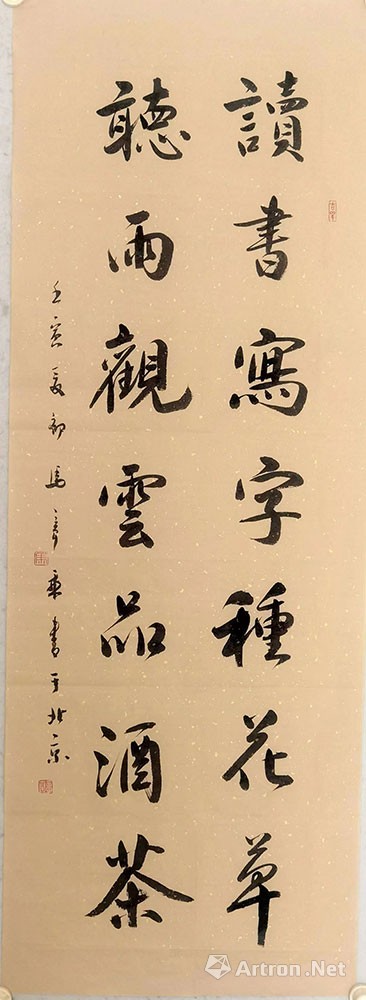 讀書寫字種花草
聽雨觀雲品酒茶
壬寅夏初馬
書于北京
Artron.Net